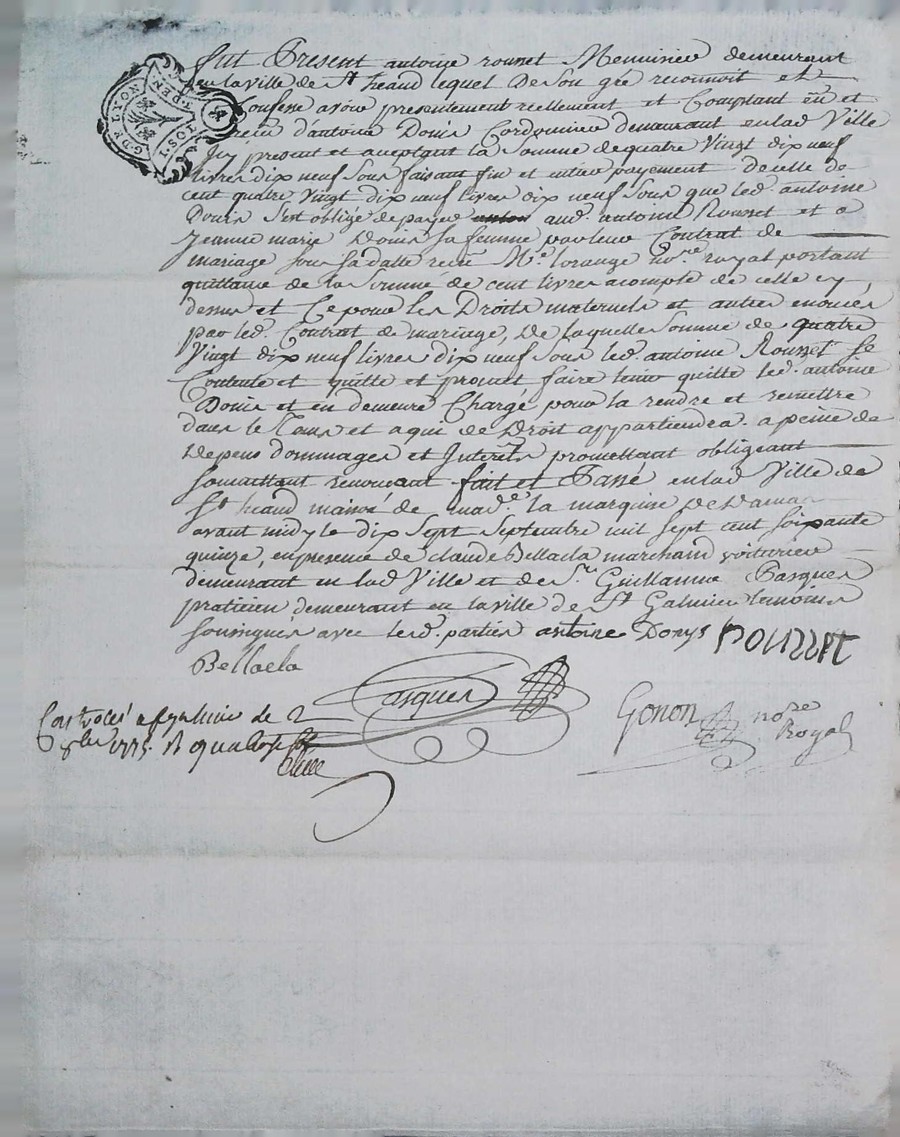 G. DE LYON
1. SOL 5. DEN
fut Present antoine rousset Menuisier demeurant
en la ville de St heand lequel de son gré reconnoit et
confesse avoir presentement reellement et Comptant eü et
reçu d'antoine Donis Cordonnier demeurant en lad. Ville
icy present et aceptant la Somme de quatre Vingt dix neuf
livres dix neuf Sous faisant fin et entier payement de celle de
cent quatre Vingt dix neuf livres dix neuf Sous que led. antoine
Donis S'est obligé de payer aud. antoine Rousset et a
Jeanne marie Donis sa femme par leur Contrat de
mariage sous sa datte recu Me. lorange nore. royal portant
quittance de la somme de cent livres acompte de celle cy
dessus et Ce pour les Droits maternels et autres enoncés
par led. Contrat de mariage, De laquelle Somme de quatre
Vingt dix neuf livres dix neuf Sous led. antoine Rousset se
Contente et quitte et promet faire tenir quitte led. antoine
Donis et en demeure Chargé pour la rendre et remettre
dans le Tems et a qui de Droit appartiendra a peine de
depens dommages et Interests promettant obligeant
soumettant renonçant fait et Passé en lad. Ville de
St heand maison de mad.e la marquise de
avant midy le dix Sept Septembre mil sept cent soixante
quinze, en presence de claude Bellacla marchand voiturier
demeurant en lad. Ville et de Sr. Guillaume Pasques
praticien demeurant en la ville de St Galmier temoins
soussignés avec lesd. parties antoine Donys ROUSSET
Bellacla
Pasques
Gonon nore
Royal
a St galmier le 2
8bre 1775. R quatorze